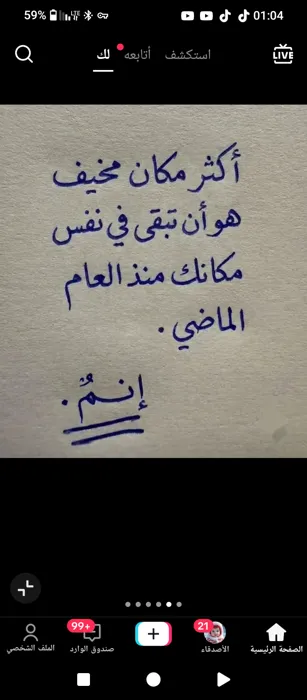 59%
LTE
01:04
LIVE
استكشف
أتابعه
لك
أكثر مكان مخيف
هو أن تبقى في نفس
مكانك منذ العام
الماضي .
إنمٌ .
الصفحة الرئيسية
21
الأصدقاء
99+
صندوق الوارد
الملف الشخصي